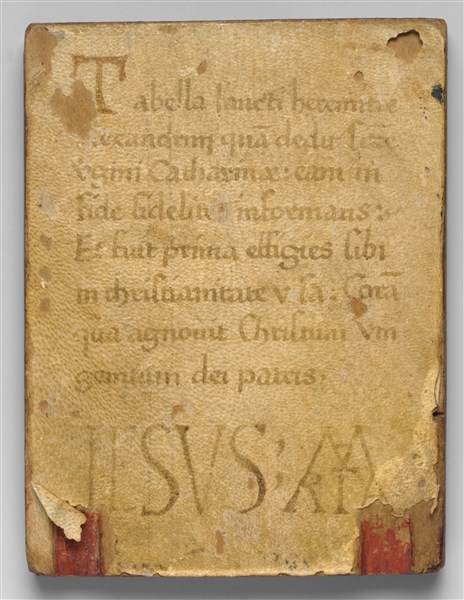 Tabella sancti heremitae
Alexandrini quā dedit scāe
v̄gini Catharinae: eam in
fide fideliū informans:
Et fuit prima effigies sibi
in christianitate visa: Corā
quā agnovit Christum vni
genitum dei patris:
IESVS; MARIA